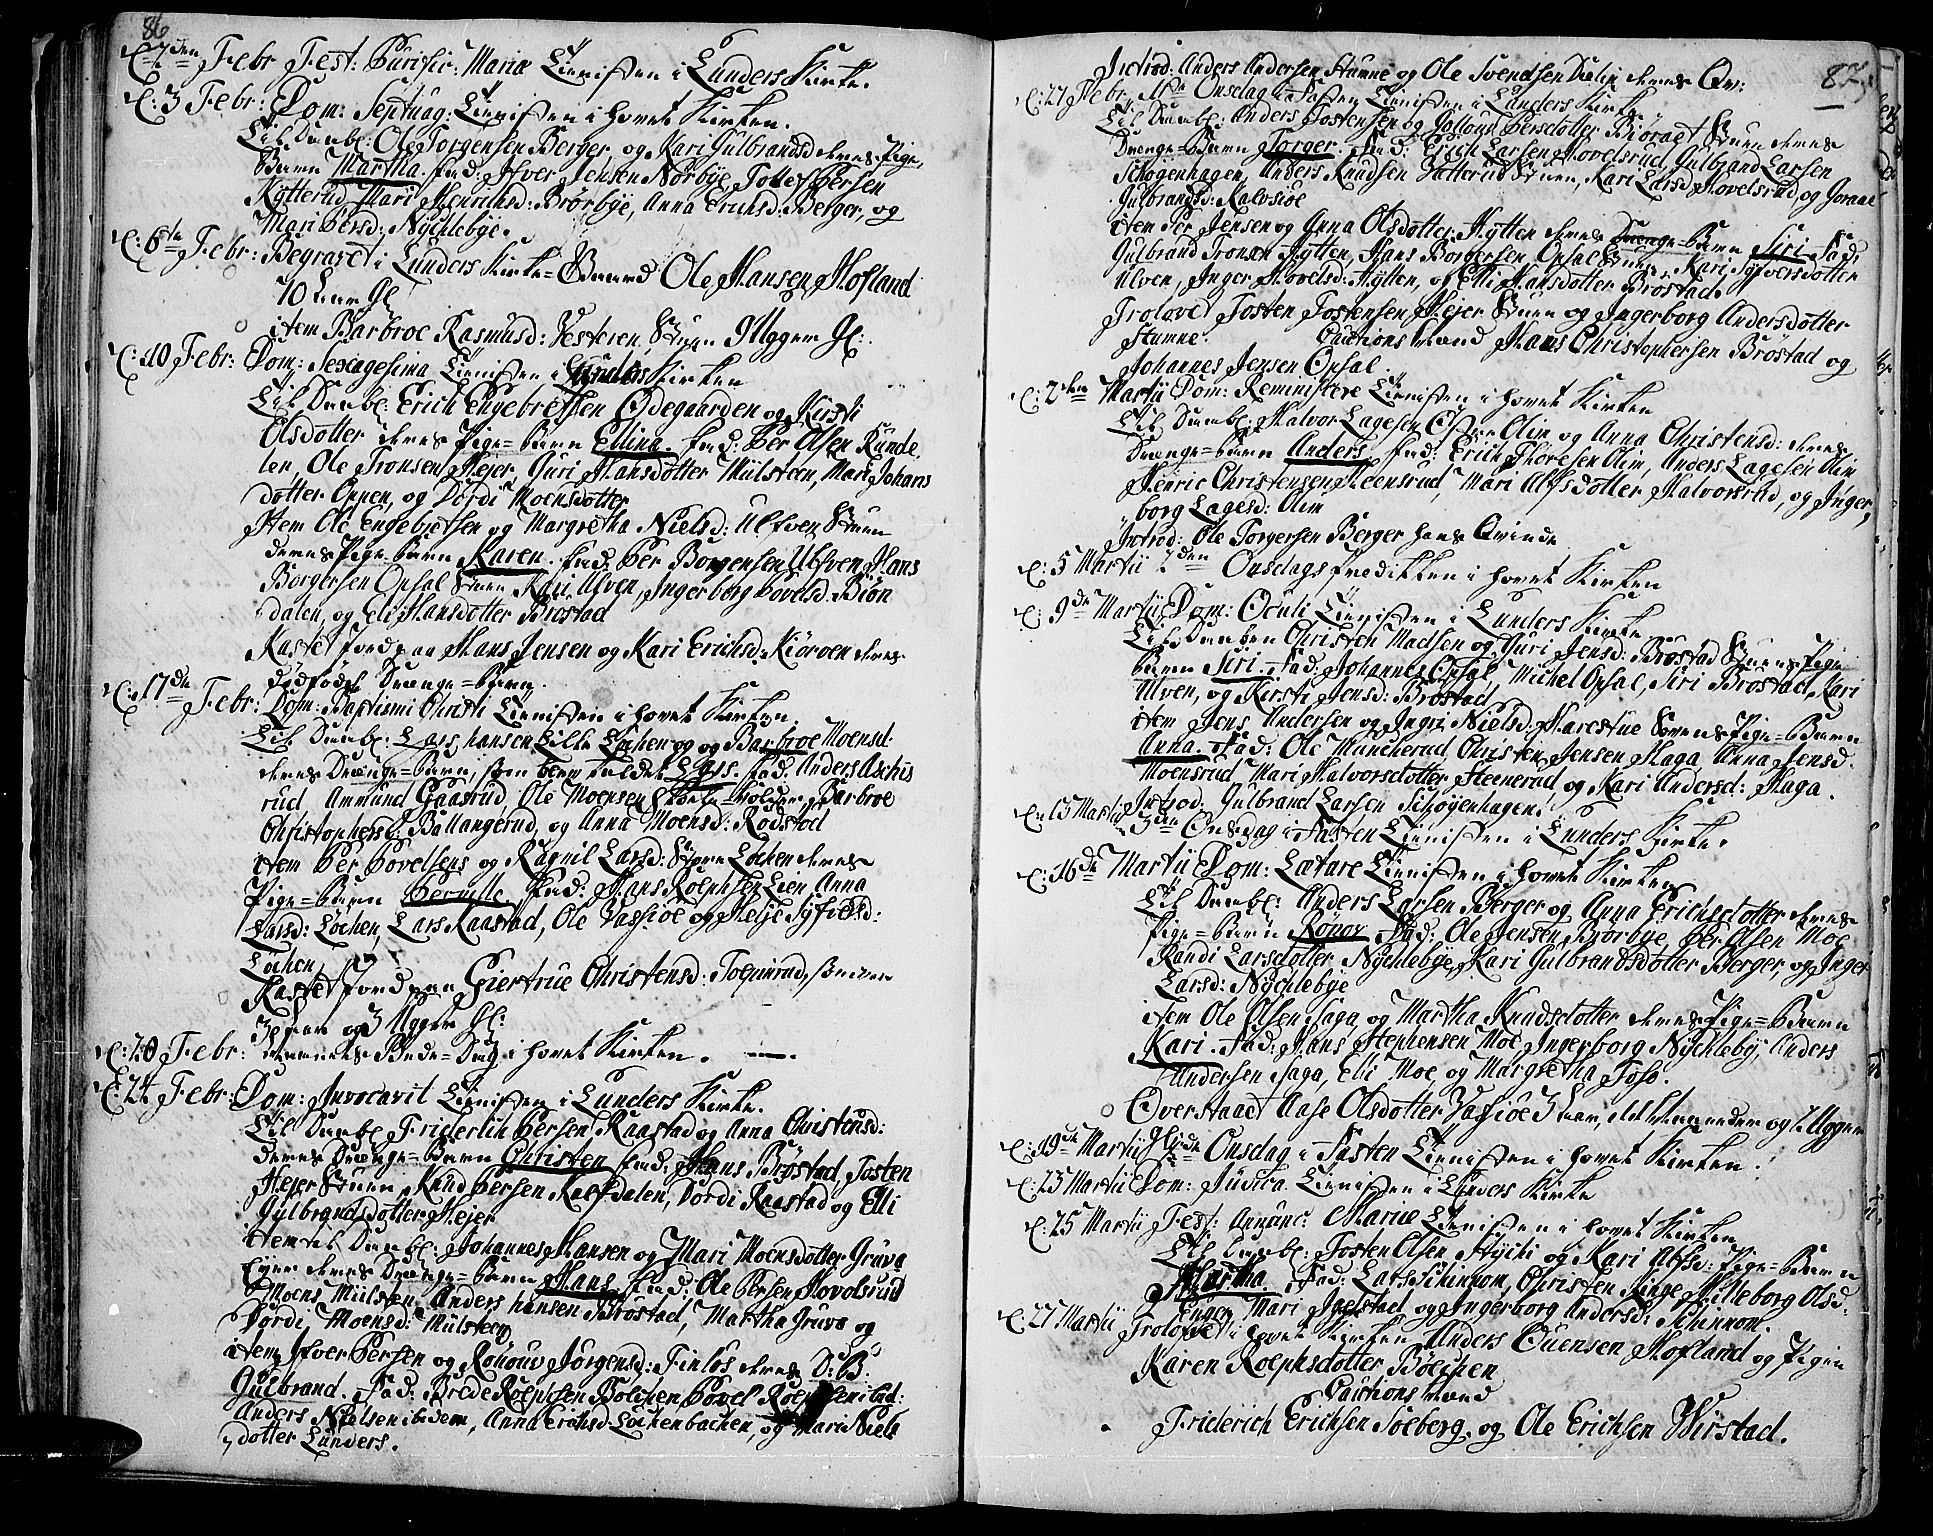 86
D: 2den Febr Fest: Purific: Mariæ Tienisten i Lunders Kirke.
D: 3 Febr: Dom: Septuag: Tienisten i Hovet Kirken.
Til Daab: Ole Torgensen Berger, og Kari Gulbrandsd deres Pige
Barn Martha. Fad: Iver Jensen Nørbye, Tollef Persen
Kytterud, Mari Henrichsd: Brørbye, Anna Erichsd: Berger, og
Mari Persd: Nychlebye.
D: 6te Febr: Begravet i Lunders Kirke-Gaard Ole Hansen Hofland
70 Aar Gl
item Barbroe Rasmusd: Vesteren, Stuen 9 Ugger Gl:
D: 10 Febr: Dom: Sexagesima Tienisten i Lunders Kirken
Til Daab: Erich Engebretsen Ødegaarden og Kirsti
Olsdotter deres Pige-Barn Ellina. Fad: Per Olsen Runde
len, Ole Tronsen Hejer, Guri Hansdotter Mülsteen, Mari Johans
dotter Oppen, og Dordi Moensdotter
Item Ole Engebretsen og Margretha Nielsd: Ulfven Stuen
deres Pige-Barn Karen. Fad: Per Borgensen Ulfven, Hans
Borgersen Opsal Stuen Kari Ulven, Ingerborg Povelsd. Biøn
dalen, og Eli Hansdotter Brostad
Kastet Jord paa Hans Jensen og Kari Erichsd: Kiørven deres
dødfødt Drænge-Barn.
D: 17de Febr: Dom: Baptismi Christi Tienisten i Hovet Kirken.
Til Daab: Lars Hansen Lille Løchen og og Barbroe Moensd:
deres Drænge-Barn, som blev kaldet Lars. Fad: Anders Aschis
rud, Ammund Gaasrud, Ole Moensen Barbroe
Christophersd: Ballangerud, og Anna Moensd: Rodstod
item Per Povelsens og Ragnil Larsd: Store Løchen deres
Pige-Barn Pernille. Fad: Hans Roephsen Lien, Anna
Larsd: Løchen, Lars Raastad, Ole Vassiøe og Helje Syfversd:
Løchen
Kastet Jord paa Giertrue Christensd: Toenrud,
3 Aar og 3 Ugger Gl:
D: 20 Febr: Bede-Dag i Hovet Kirken.
D: 24 Febr: Dom: Invocavit Tienisten i Lunders Kirke.
Til Daab: Friderich Persen Raastad og Anna Christensd:
deres Drænge-Barn Christen Fad: Hans Brøstad, Josten
Hejer Stuen Knud Persen Raefdalen, Dordi Raastad og Elli
Gulbrandsdotter Hejer
item til Daab: Johannes Hansen og Mari Moensdotter Gruva
Ejer deres Drænge-Barn Hans. Fad: Ole Persen Hovolsrud
Moens Mülsten, Anders Hansen Brøstad, Martha Gruva og
Dordi, Moensd: Mülsteen
item Ifver Persen og Rønouv Jørgensd: Finlös deres D: B:
Gulbrand. Fad: Brede Roephsen Bolchen Povel Roephsen ibid:
Anders Nielsen ibidem, Anna Erichsd Løchenbachen, og Mari Niels
dotter Lunders.
87
Introd: Anders Andersen Stumne og Ole Svendsen Dælin deres Qv:
D: 27 Febr. 1ste Onsdag i Fasten Tienisten i Lunders Kirke
Til Daab: Anders Jostensen og Gollaug Persdotter Biøraet Stuen deres
Drænge-Barn Torger. Fad: Erich Larsen Hovelsrud, Gulbrand Larsen
Schøgenhagen, Anders Knudsen Fatterud Stuen, Kari Larsd Hovelsrud, og Goraae
Gulbrandsd: Kalvsiøe
item Per Jensen og Anna Olsdotter Hytten deres Drænge-Barn Siri Fad:
Gulbrand Tronsen Hytten, Hans Borgersen Opsal Stuen, Kari Syfversdotter
Ulven, Inger Hovelsd: Hytten, og Elli Hansdotter Brøstad.
Trolovet Josten Jostensen Hejer Stuen og Ingerborg Andersdotter
Stumne. Cautions Mænd Hans Christophersen Brøstad og
Johannes Jensen Opsal.
D: 2den Martii Dom: Reminiscere Tienisten i Hovet Kirken
Til Daab: Halvor Lagesen Olim og Anna Christensd: deres
Drænge-Barn Anders. Fad: Erich Theresen Olim, Anders Lagesen Olim
Henric Christensen Steensrud, Mari Alfsdotter Halvorsrud, og Inger
borg Lagesd: Olim
Introd: Ole Torgersen Berger hans Qvinde
D: 5 Martii 2den Onsdags Prædikken i Hovet Kirken
D: 9de Martii Dom: Oculi Tienisten i Lunders Kirke
Til Daaben Christen Madsen og Guri Jensd: Brøstad Stuens Pige
Barn Siri. Fad: Johannes Opsal, Michel Opsal, Siri Brøstad, Kari
Ulven, og Kirsti Jensd: Brøstad
item Jens Andersen og Ingri Nielsd: Harestue Eiens Pige-Barn
Anna. Fad: Ole Muncherud, Christen Jensen Haga, Anna Jensd.
Moensrud, Mari Halvorsdotter Steenerud og Kari Andersd: Haga.
Introd: Gulbrand Larsen Schøyenhagen.
D: 13 Martii 3die Onsdag i Fasten Tienisten i Lunders Kirke.
D: 16de Martii Dom: Lætare Tienisten i Hovet Kirken
Til Daab: Anders Larsen Berger og Anna Erichsdotter deres
Pige-Barn Rønov. Fad: Ole Jensen Brørbye, Per Olsen Moe
Randi Larsdotter Nychlebye, Kari Gulbrandsdotter Berger, og Inger
Larsd: Nychlebye
item Ole Olsen Haga og Martha Knudsdotter deres Pige-Barn
Kari. Fad: Hans Stephensen Moe, Ingerborg Nychleby, Anders
Andersen Haga, Elli Moe, og Margretha Foso.
Overstaaet Aase Olsdotter Vassiøe 3 Aar, Maaneder og 2 Ugger
D: 19de Martii Onsdag i Fasten Tienisten i Hovet Kirken.
D: 23 Martii Dom: Judica Tienisten i Lunders Kirke
D: 25 Martii Fest: Annunc: Mariæ Tienisten i Hovet Kirken
Til Daab: Josten Olsen og Kari Alfsd: Pige-Barn
Martha. Fad: Lars Schinnom, Christen Ringe, Hilleborg Olsd.
Enger Mari Ivelstad, og Ingerborg Andersd: Schinnom.
D: 27 Martii Trolovet i Hovet Kirken Anders Evensen Hofland og Pigen
Karen Roephsdotter Bølchen
Cautions Mænd
Friderich Erichsen Soeberg, og Ole Erichsen Wirstad.